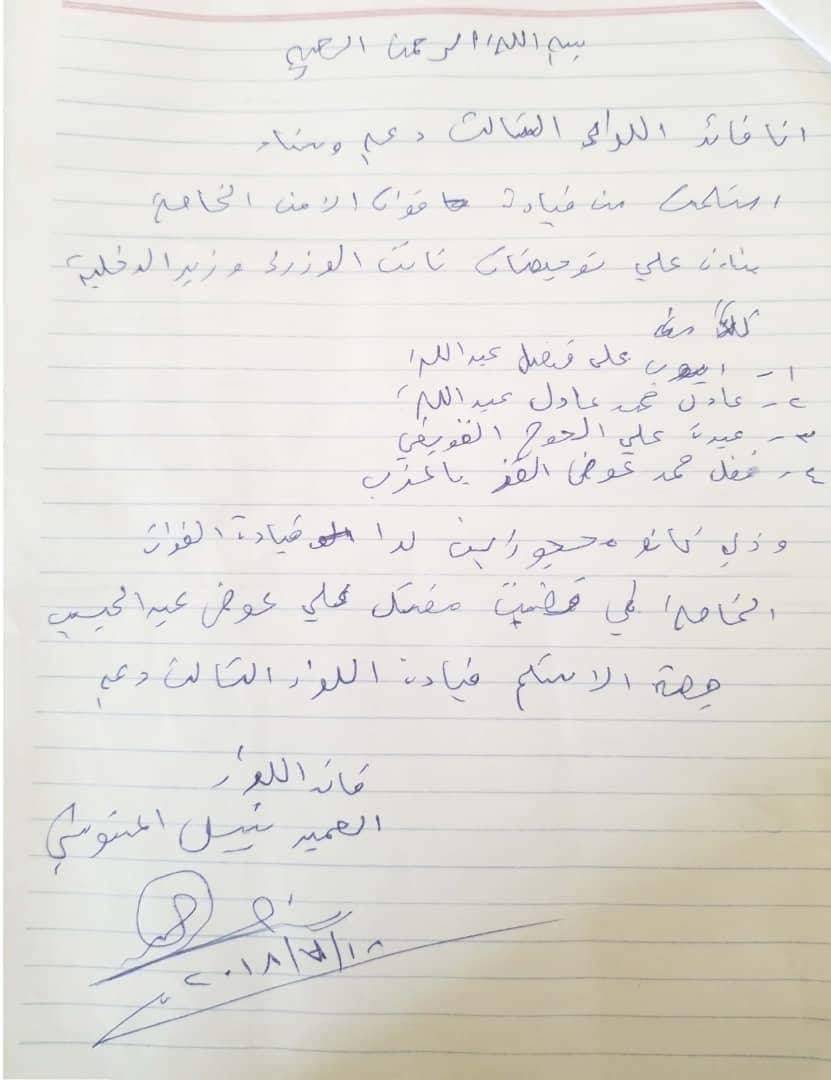 بسم الله الرحمن الرحيم
انا قائد اللواء الثالث دعم وسناد
استلمت من قيادة قوات الامن الخاصة
بناءن علي توجيهات نائب الوزرئ وزير الدخلية
كلا من
١- ايوب علي فضل عبدالله
٢- عادل محمد عادل عبدالله
٣- عبدة علي
٤- محمد عوض
وذلك كانو محجوزاين لدا قيادة القوات
الخاصة في قضيت مقتل علي عوض عبدالحبيب
جهة الاستلام قيادة اللواء الثالث دعم
قائد اللواء
العميد نبيل المشوشي